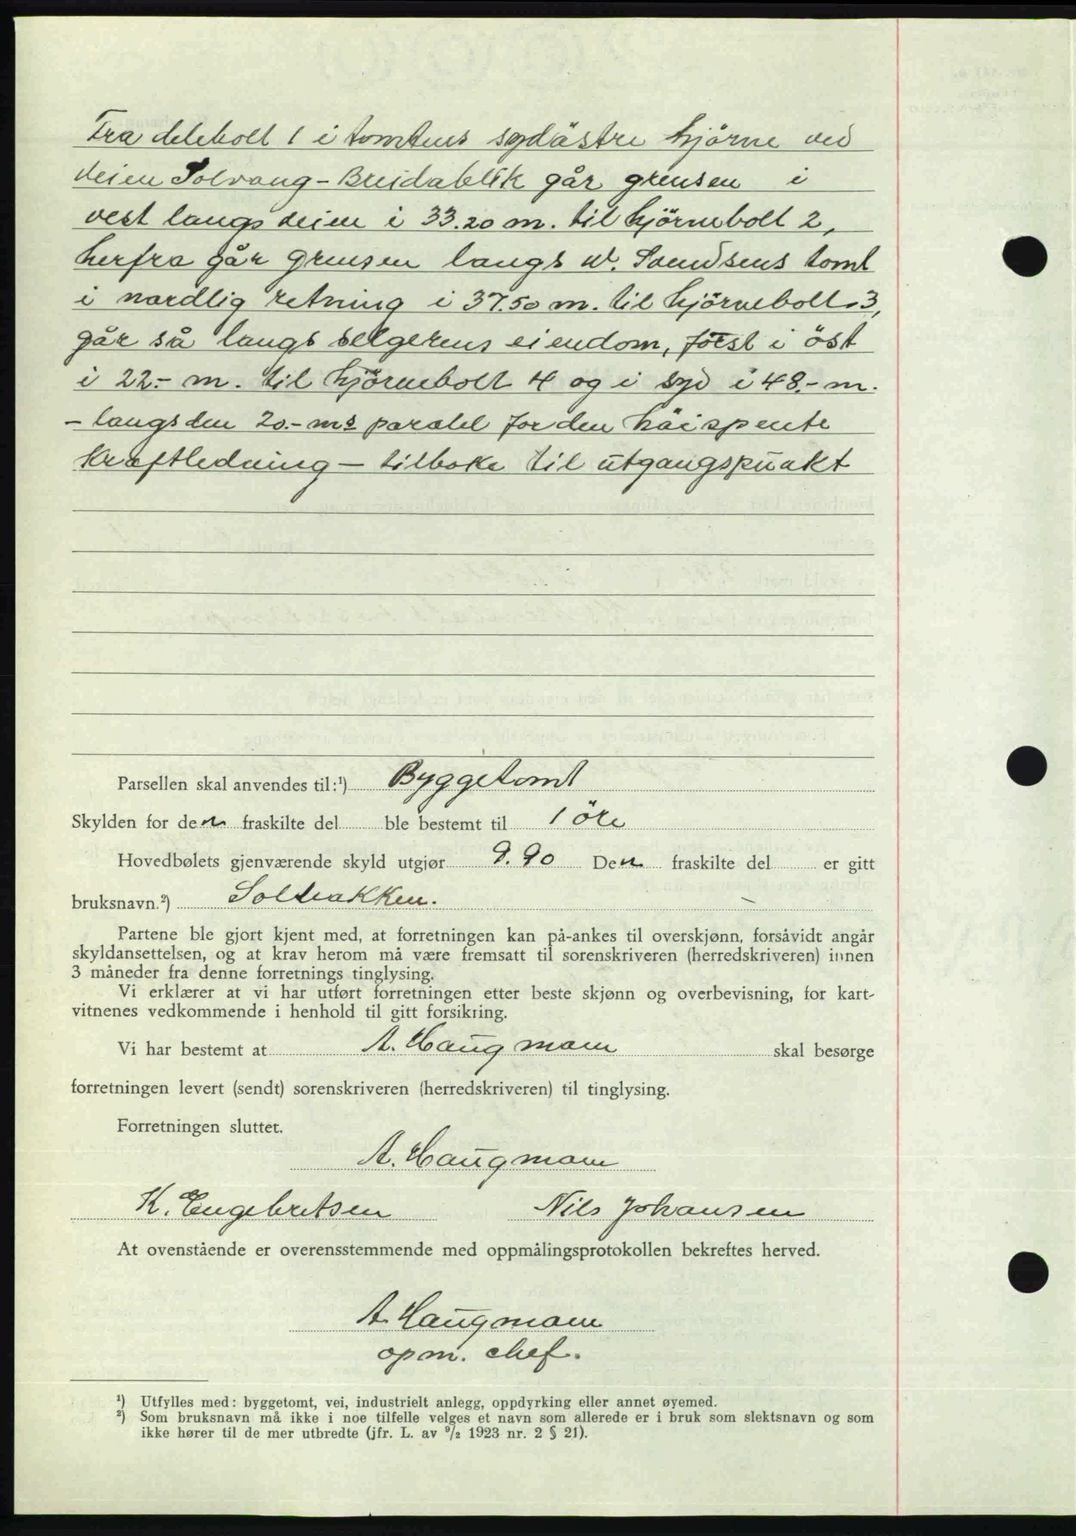 Fra delebolt 1 i tomtens sydästre hjörne ved
veien Solvang - Breidablik går grensen i
vest langs veien i 33.20 m. til hjörnebolt 2,
herfra går grensen langs W. Svendsens tomt
i nordlig retning i 37.50 m. til hjörnebolt 3,
går så langs selgerens eiendom, först i öst
i 22.- m. til hjörnebolt 4 og i syd i 48.- m.
- langs den 20.- ms paralel for den häispente
Kraftledning - tilbake til utgangspunkt
Parsellen skal anvendes til:¹) Byggetomt
Skylden for den fraskilte del ble bestemt til 1 öre
Hovedbølets gjenværende skyld utgjør 9.90 Den fraskilte del er gitt
bruksnavn.²) Solbakken.
Partene ble gjort kjent med, at forretningen kan på-ankes til overskjønn, forsåvidt angår
skyldansettelsen, og at krav herom må være fremsatt til sorenskriveren (herredskriveren) innen
3 måneder fra denne forretnings tinglysing.
Vi erklærer at vi har utført forretningen etter beste skjønn og overbevisning, for kart-
vitnenes vedkommende i henhold til gitt forsikring.
Vi har bestemt at A. Haugmann skal besørge
forretningen levert (sendt) sorenskriveren (herredskriveren) til tinglysing.
Forretningen sluttet.
A. Haugmann
K. Engebretsen Nils Johansen
At ovenstående er overensstemmende med oppmålingsprotokollen bekreftes herved.
A Haugmann
opm. chef.
¹) Utfylles med: byggetomt, vei, industrielt anlegg, oppdyrking eller annet øyemed.
²) Som bruksnavn må ikke i noe tilfelle velges et navn som allerede er i bruk som slektsnavn og som
ikke hører til de mer utbredte (jfr. L. av ⁹/₂ 1923 nr. 2 § 21).